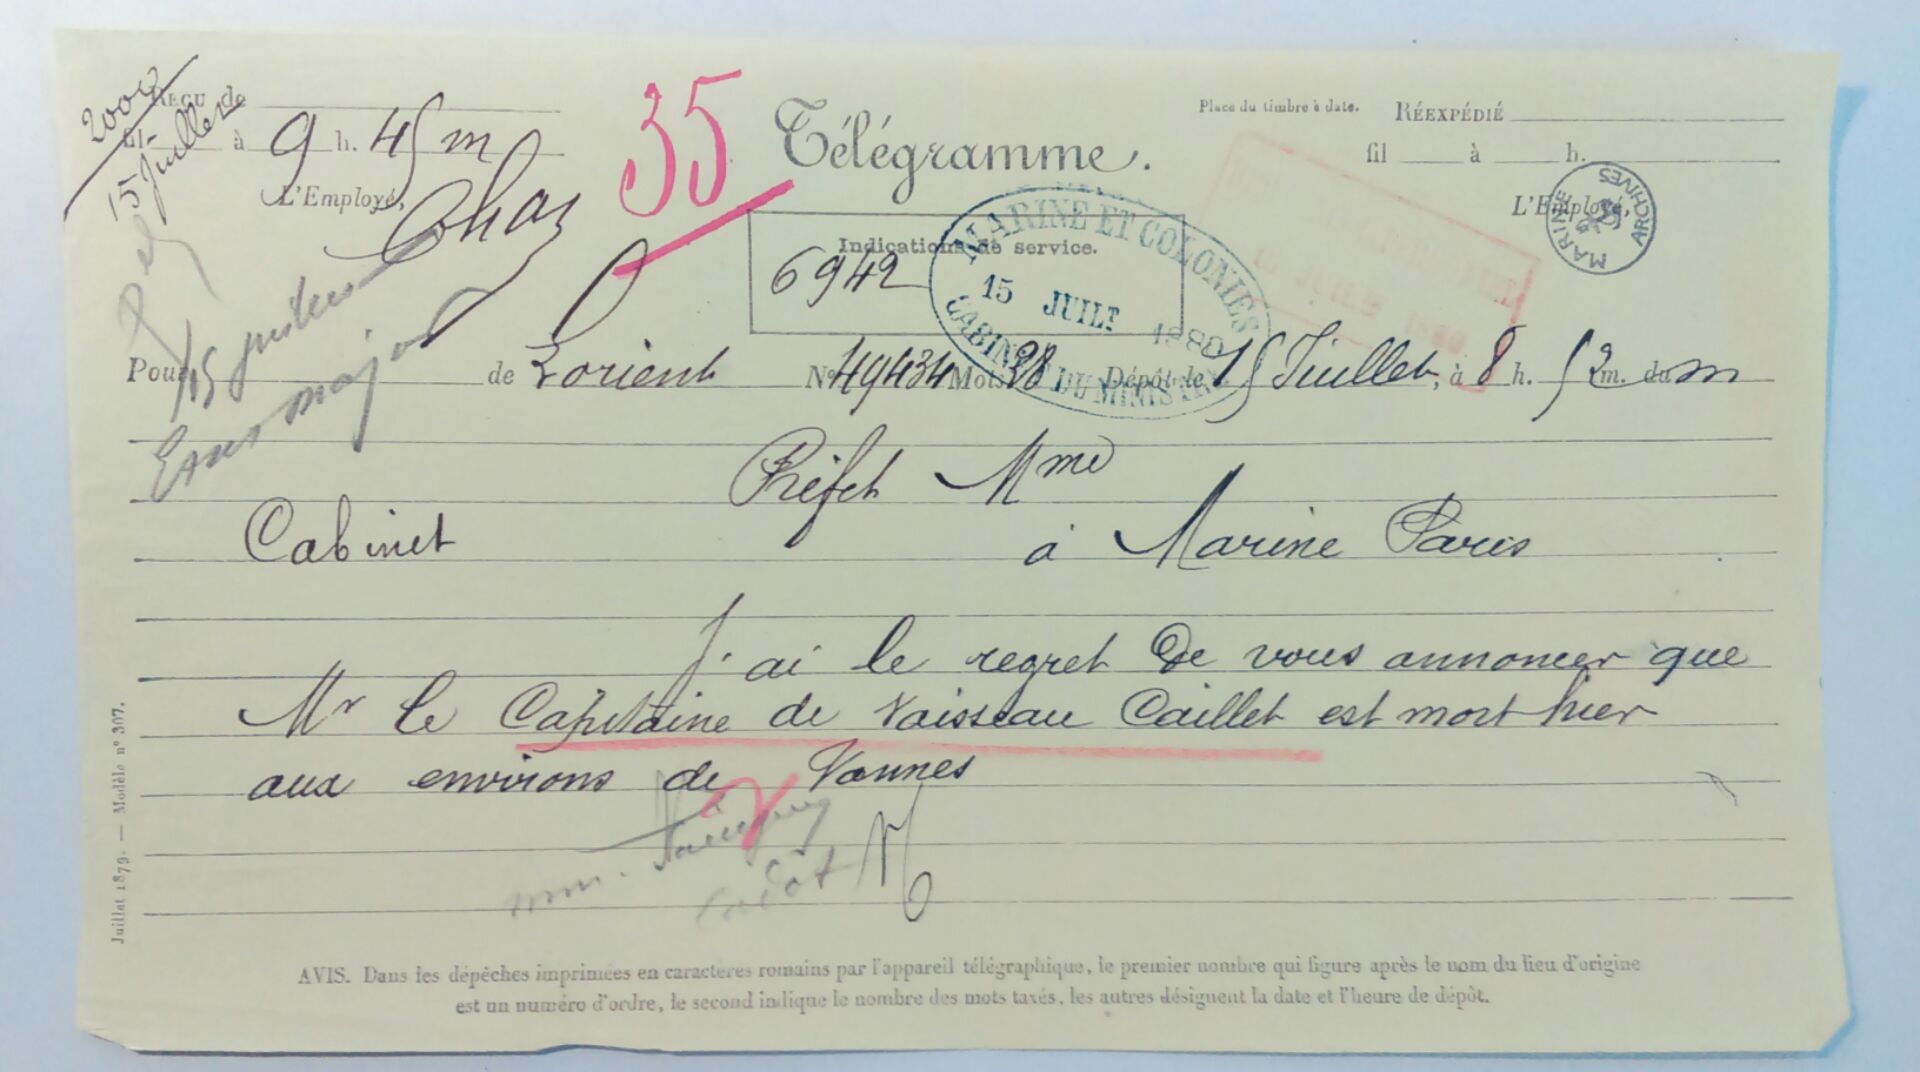 Reçu de
fil à 9 h. 45 m
15 Juillet
L'Employé,
35
Télégramme.
Place du timbre à date.
Réexpédié
fil à h.
L'Employé,
MARINE ARCHIVES
Indications de service.
6942
MARINE ET COLONIES
15 JUILT 1880
CABINET DU MINISTRE
Pour de Lorient No 49434 Mots 28 Dépôt le 15 Juillet, à 8 h. 52 m. du m
major
Préfet Mme
Cabinet à Marine Paris
J'ai le regret de vous annoncer que
Mr le Capitaine de Vaisseau Caillet est mort hier
aux environs de Vannes
Juillet 1879. — Modèle n° 307.
AVIS. Dans les dépêches imprimées en caractères romains par l'appareil télégraphique, le premier nombre qui figure après le nom du lieu d'origine
est un numéro d'ordre, le second indique le nombre des mots taxés, les autres désignent la date et l'heure de dépôt.